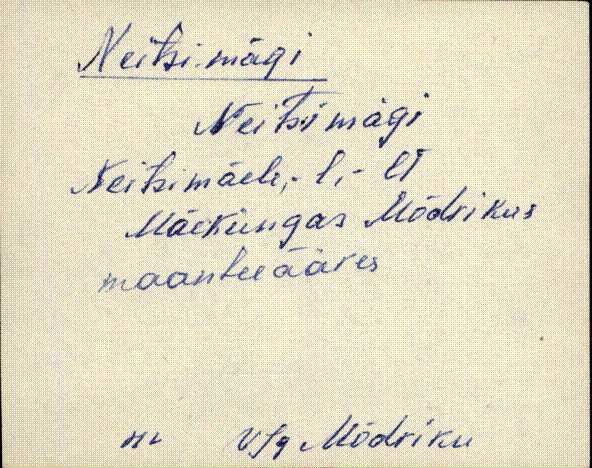 Neitsi.mägi
Neitsimägi
Neitsimäele,- l,- lt
Mäekungas Mõdrikus
maantee ääres
VJg Mõdriku